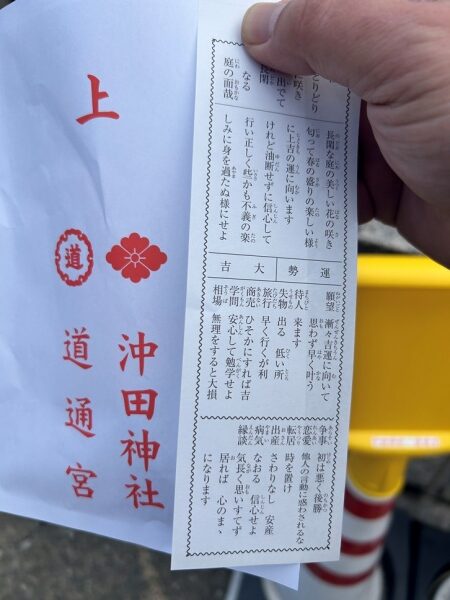 とりどり
に咲き
出でて
長閑
なる
庭の面哉
長閑な庭の美しい花の咲き
匂って春の盛りの楽しい様
に上吉の運に向います
けれど油断せずに信心して
行い正しく些かも不義の楽
しみに身を過たぬ様にせよ
運勢
大吉
願望 漸々吉運に向いて
思わず早く叶う
待人 来ます
失物 出る 低い所
旅行 早く行くが利
商売 ひそかにすれば吉
学問 安心して勉学せよ
相場 無理をすると大損
争事 初は悪く後勝
恋愛 他人の言動に惑わされるな
転居 時を置け
出産 さわりなし 安産
病気 なおる 信心せよ
縁談 気長く思いすてず
居れば 心のまゝ
になります
上
沖田神社
道
道通宮